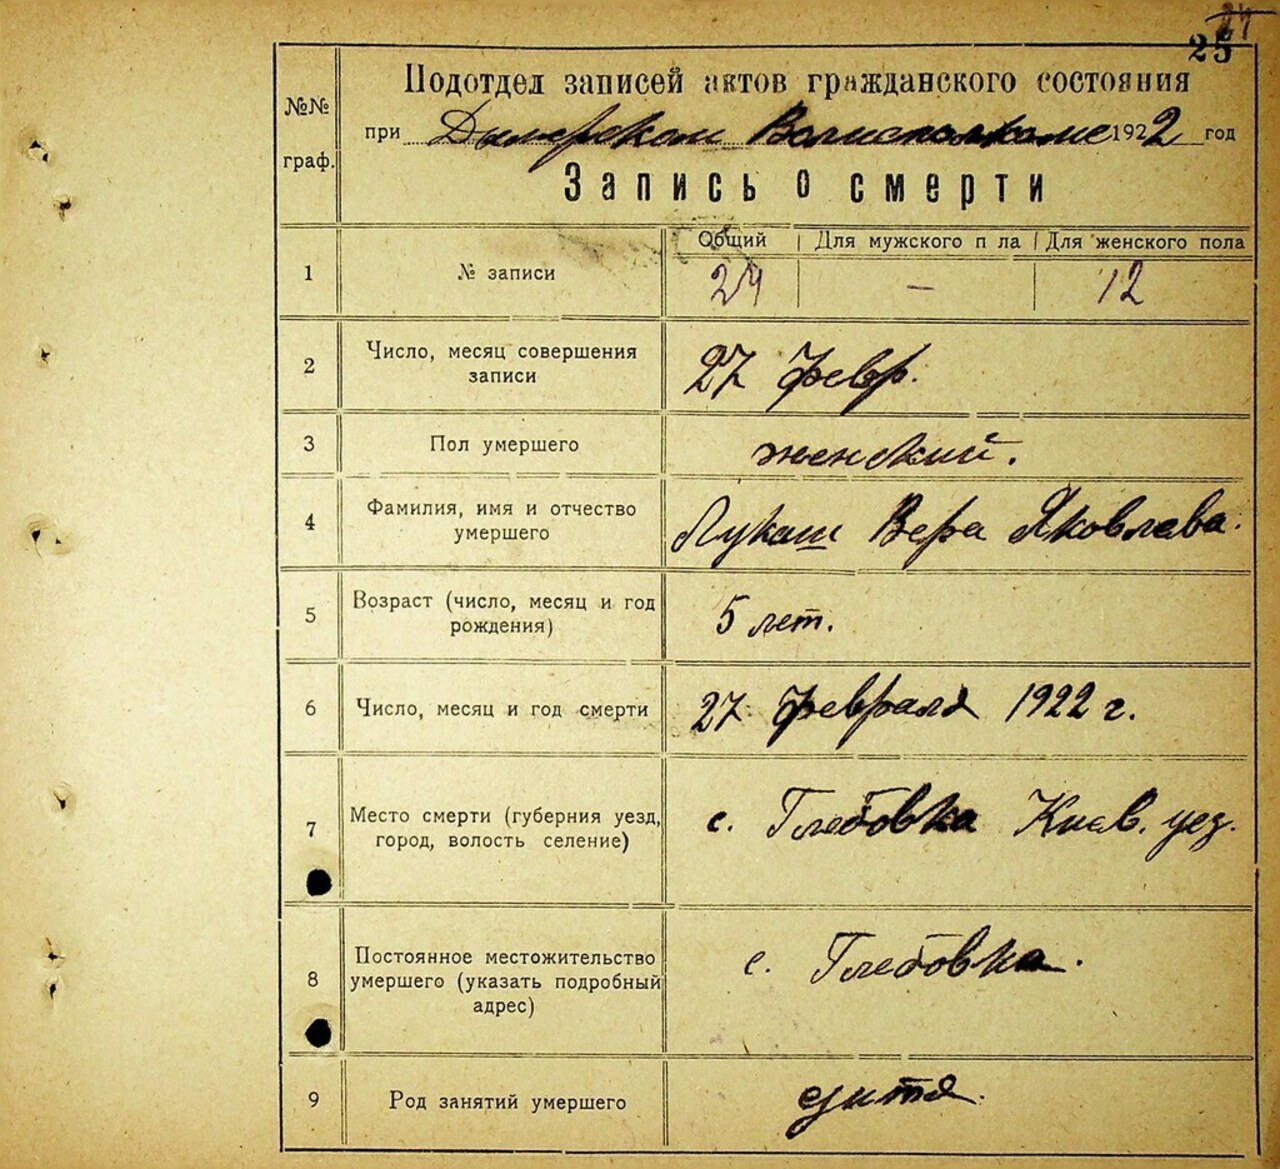 24
25
Подотдел записей актов гражданского состояния
№№
граф.
при Дымерском Волисполкоме 1922 год
Запись о смерти
Общий | Для мужского п ла | Для женского пола
1 № записи 24 — 12
2 Число, месяц совершения
записи 27 февр.
3 Пол умершего женский.
4 Фамилия, имя и отчество
умершего Лукаш Вера Яковлева.
5 Возраст (число, месяц и год
рождения) 5 лет.
6 Число, месяц и год смерти 27 февраля 1922 г.
7 Место смерти (губерния уезд,
город, волость селение) с. Глебовка Киев. уез.
8 Постоянное местожительство
умершего (указать подробный
адрес) с. Глебовка.
9 Род занятий умершего дитя.